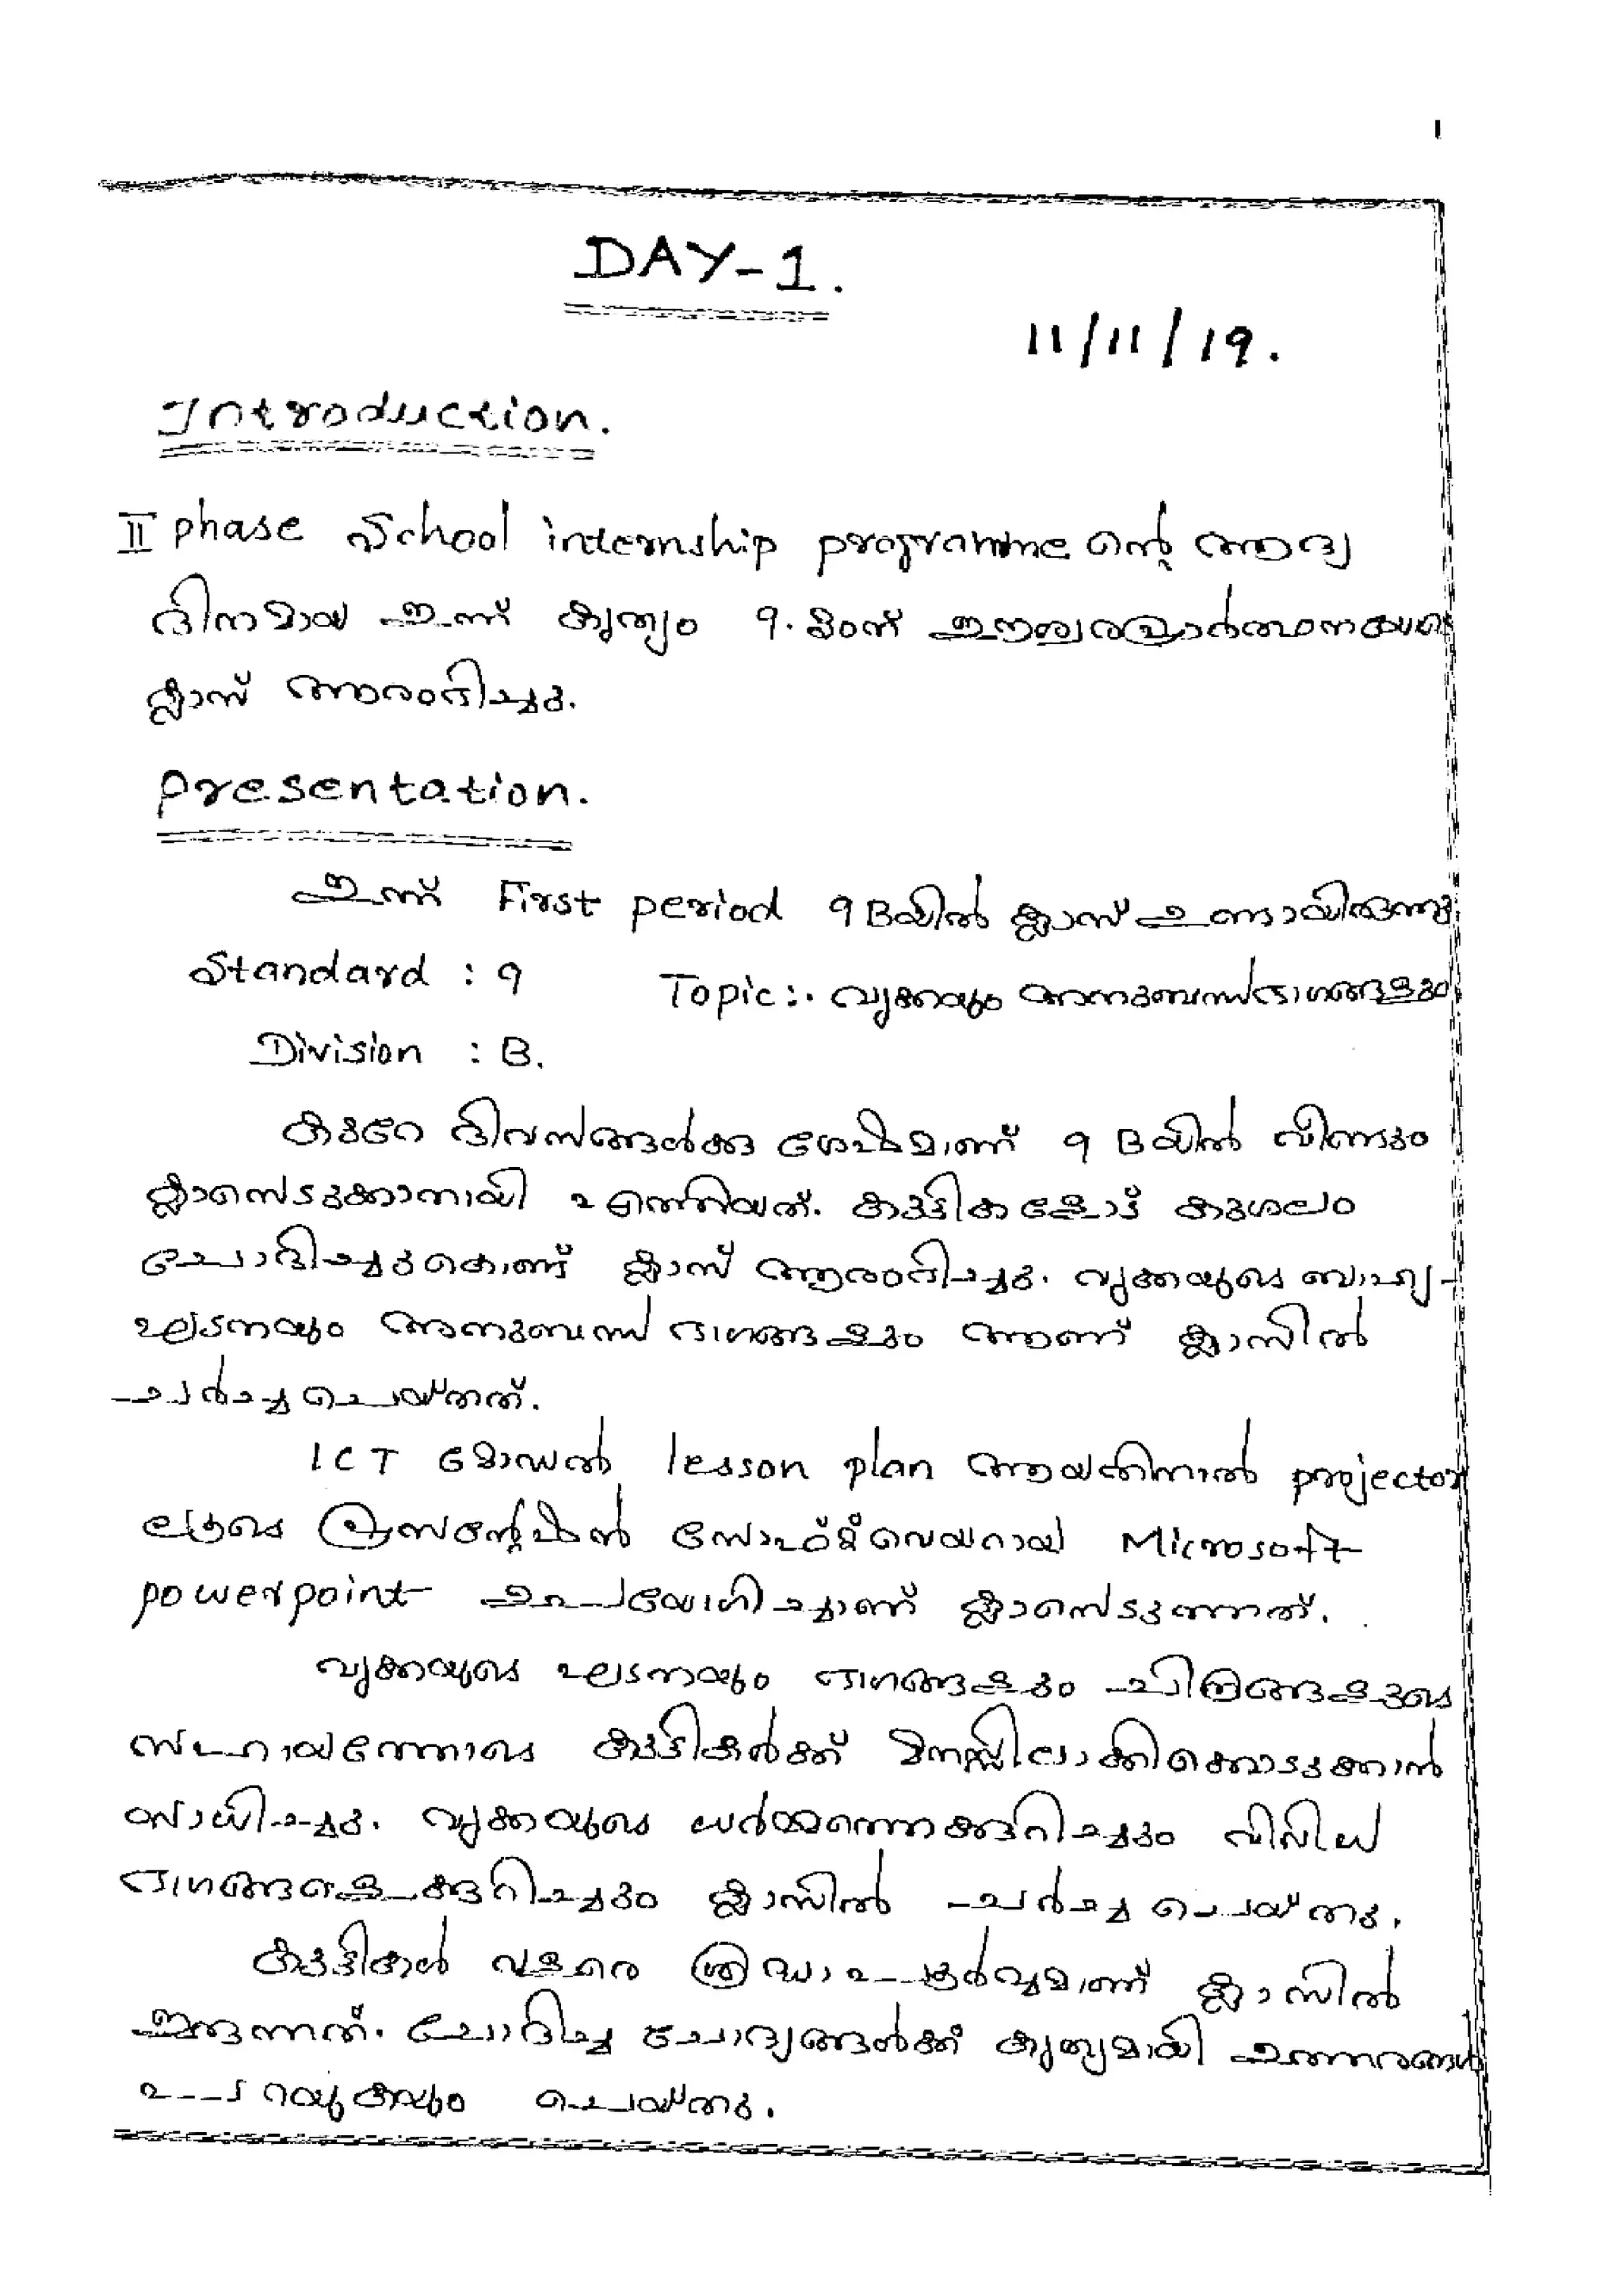 1
DAY-1.
11/11/19.
Introduction.
II phase School internship programme ന്റെ ആദ്യ
ദിനമായ ഇന്ന് കൃത്യം 9.30ന് ഈശ്വരപ്രാർത്ഥനയോടെ
ക്ലാസ് ആരംഭിച്ചു.
Presentation.
ഇന്ന് First period 9 Bയിൽ ക്ലാസ് ഉണ്ടായിരുന്നു
Standard : 9 Topic :· വൃക്കയും അനുബന്ധഭാഗങ്ങളും
Division : B.
കുറേ ദിവസങ്ങൾക്കു ശേഷമാണ് 9 Bയിൽ വീണ്ടും
ക്ലാസെടുക്കാനായി എത്തിയത്. കുട്ടികളോട് കുശലം
ചോദിച്ചുകൊണ്ട് ക്ലാസ് ആരംഭിച്ചു. വൃക്കയുടെ ബാഹ്യ-
ഘടനയും അനുബന്ധ ഭാഗങ്ങളും ആണ് ക്ലാസിൽ
ചർച്ച ചെയ്തത്.
ICT മോഡൽ lesson plan ആയതിനാൽ projector
ലൂടെ പ്രസന്റേഷൻ സോഫ്റ്റ്‌വെയറായ Microsoft
powerpoint ഉപയോഗിച്ചാണ് ക്ലാസെടുത്തത്.
വൃക്കയുടെ ഘടനയും ഭാഗങ്ങളും ചിത്രങ്ങളുടെ
സഹായത്തോടെ കുട്ടികൾക്ക് മനസ്സിലാക്കികൊടുക്കാൻ
സാധിച്ചു. വൃക്കയുടെ ധർമ്മത്തെക്കുറിച്ചും വിവിധ
ഭാഗങ്ങളെക്കുറിച്ചും ക്ലാസിൽ ചർച്ച ചെയ്തു.
കുട്ടികൾ വളരെ ശ്രദ്ധാപൂർവ്വമാണ് ക്ലാസിൽ
ഇരുന്നത്. ചോദിച്ച ചോദ്യങ്ങൾക്ക് കൃത്യമായി ഉത്തരങ്ങൾ
പറയുകയും ചെയ്തു.